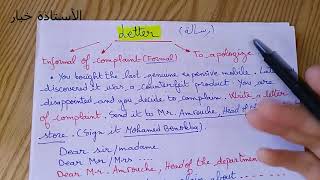 الأستاذة خبار
Letter (رسالة)
Informal of complaint (Formal) To apologize
• You bought the last genuine expensive mobile. Late
discovered it was a counterfeit product. You are
disappointed and you decide to complain. Write a letter
of complaint. Send it to Mr. Amrouche, Head of
store. (Sign it Mohamed Benokba).
Dear sir/madame.
Dear Mrs/Mrs ....
Dear Mr. Amrouche, Head of the department
about